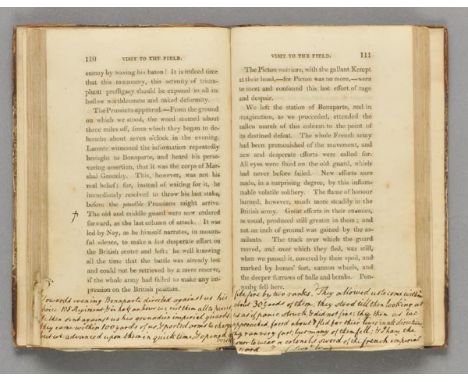 110
VISIT TO THE FIELD.
enemy by waving his baton! It is indeed time
that this mummery, this serenity of trium-
phant profligacy should be exposed in all its
hollow worthlessness and naked deformity.
The Prussians appeared.—From the ground
on which we stood, the wood started about
three miles off, from which they began to de-
bouche about seven o'clock in the evening.
Lacoste witnessed the information repeatedly
brought to Bonaparte, and heard his perse-
vering assertion, that it was the corps of Mar-
shal Grouchy. This, however, was not his
real belief; for, instead of waiting for it, he
immediately resolved to throw his last stake,
before the possible Prussians might arrive.
The old and middle guard were now ordered
forward, as the last column of attack. It was
led by Ney, as he himself narrates, in mourn-
ful silence, to make a last desperate effort on
the British center and left; he well knowing
all the time that the battle was already lost
and could not be retrieved by a mere reserve,
if the whole army had failed to make any im-
pression on the British position.
Towards evening Bonaparte directed against us his
sent against us his grenadier imperial guards
they came within 100 yards of us & ported arms to charge
but we advanced upon them in quick time & opened a
VISIT TO THE FIELD.
111
The Picton warriors, with the gallant Kempt
at their head,—for Picton was no more,—were
to meet and confound this last effort of rage
and despair.
We left the station of Bonaparte, and in
imagination, as we proceeded, attended the
sullen march of this column to the point of
its destined defeat. The whole French army
had been premonished of the movement, and
new and desperate efforts were called for:
All eyes were fixed on the old guard, which
had never before failed. New efforts were
made, in a surprising degree, by this inflam-
mable volatile soldiery. The flame of honour
burned, however, much more steadily in the
British army. Great efforts in their enemies,
as usual, produced still greater in them; and
not an inch of ground was gained by the as-
sailants. The track over which the guard
moved, and over which they fled, was still,
when we passed it, covered by their spoil, and
marked by horses' feet, cannon wheels, and
the deeper furrows of balls and bombs. Pon-
sonby fell here.
file fire by two ranks. They allowed us to come within
30 yards of them. they stood till then looking at
us as if panic struck & did not fire; they then as we
approached faced about & fled for their lives in all directions